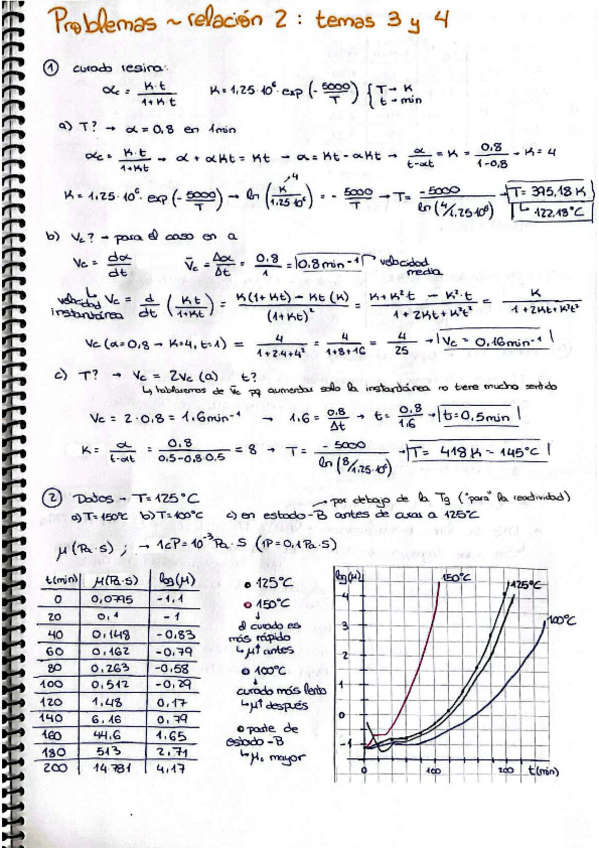 Problemas ~ relación 2: temas 3 y 4
① curado resina:
αc = K·t / 1+K·t   K = 1,25·10⁶·exp(-5000/T) { T → K   t → min
a) T? → α = 0,8 en 1min
αc = K·t / 1+Kt → α + αKt = Kt → α = Kt - αKt → α / t-αt = K = 0,8 / 1-0,8 → K = 4
K = 1,25·10⁶·exp(-5000/T) → ln(K / 1,25·10⁶) = -5000/T → T = -5000 / ln(4/1,25·10⁶) → T = 395,18 K
4
↳ 122,18°C
b) Vc? → para el caso en a
Vc = dα/dt   V̄c = Δα/Δt = 0,8/1 = 0,8 min⁻¹ → velocidad media
↳ velocidad instantánea Vc = d/dt (Kt / 1+Kt) = K(1+Kt) - Kt(K) / (1+Kt)² = K+K²t - K²·t / 1+2Kt+K²t² = K / 1+2Kt+K²t²
Vc (α=0,8 → K=4, t=1) = 4 / 1+2·4+4² = 4 / 1+8+16 = 4/25 → Vc = 0,16 min⁻¹
c) T? → Vc = 2Vc (a)   t?
↳ hablaremos de v̄c pq aumentar solo la instantánea no tiene mucho sentido
Vc = 2·0,8 = 1,6 min⁻¹ → 1,6 = 0,8/Δt → t = 0,8/1,6 → t = 0,5 min
K = α / t-αt = 0,8 / 0,5-0,8·0,5 = 8 → T = -5000 / ln(8/1,25·10⁶) → T = 418 K ~ 145°C
② Datos → T = 125°C → por debajo de la Tg ("para" la reactividad)
a) T = 150°C b) T = 100°C c) en estado-B antes de curar a 125°C
μ (Pa·s) ; → 1cP = 10⁻³ Pa·s (1P = 0,1 Pa·s)
t(min) μ(Pa·s) log(μ)
0 0,0795 -1,1
20 0,1 -1
40 0,148 -0,83
60 0,162 -0,79
80 0,263 -0,58
100 0,512 -0,29
120 1,48 0,17
140 6,16 0,79
160 44,6 1,65
180 513 2,71
200 14 781 4,17
• 125°C
• 150°C
↓
el curado es
más rápido
↳ μ↑ antes
• 100°C
↓
curado más lento
↳ μ↑ después
• parte de
estado-B
↳ μ₀ mayor
log(μ)
150°C
125°C
100°C
4
3
2
1
0
-1
0 100 200 t(min)